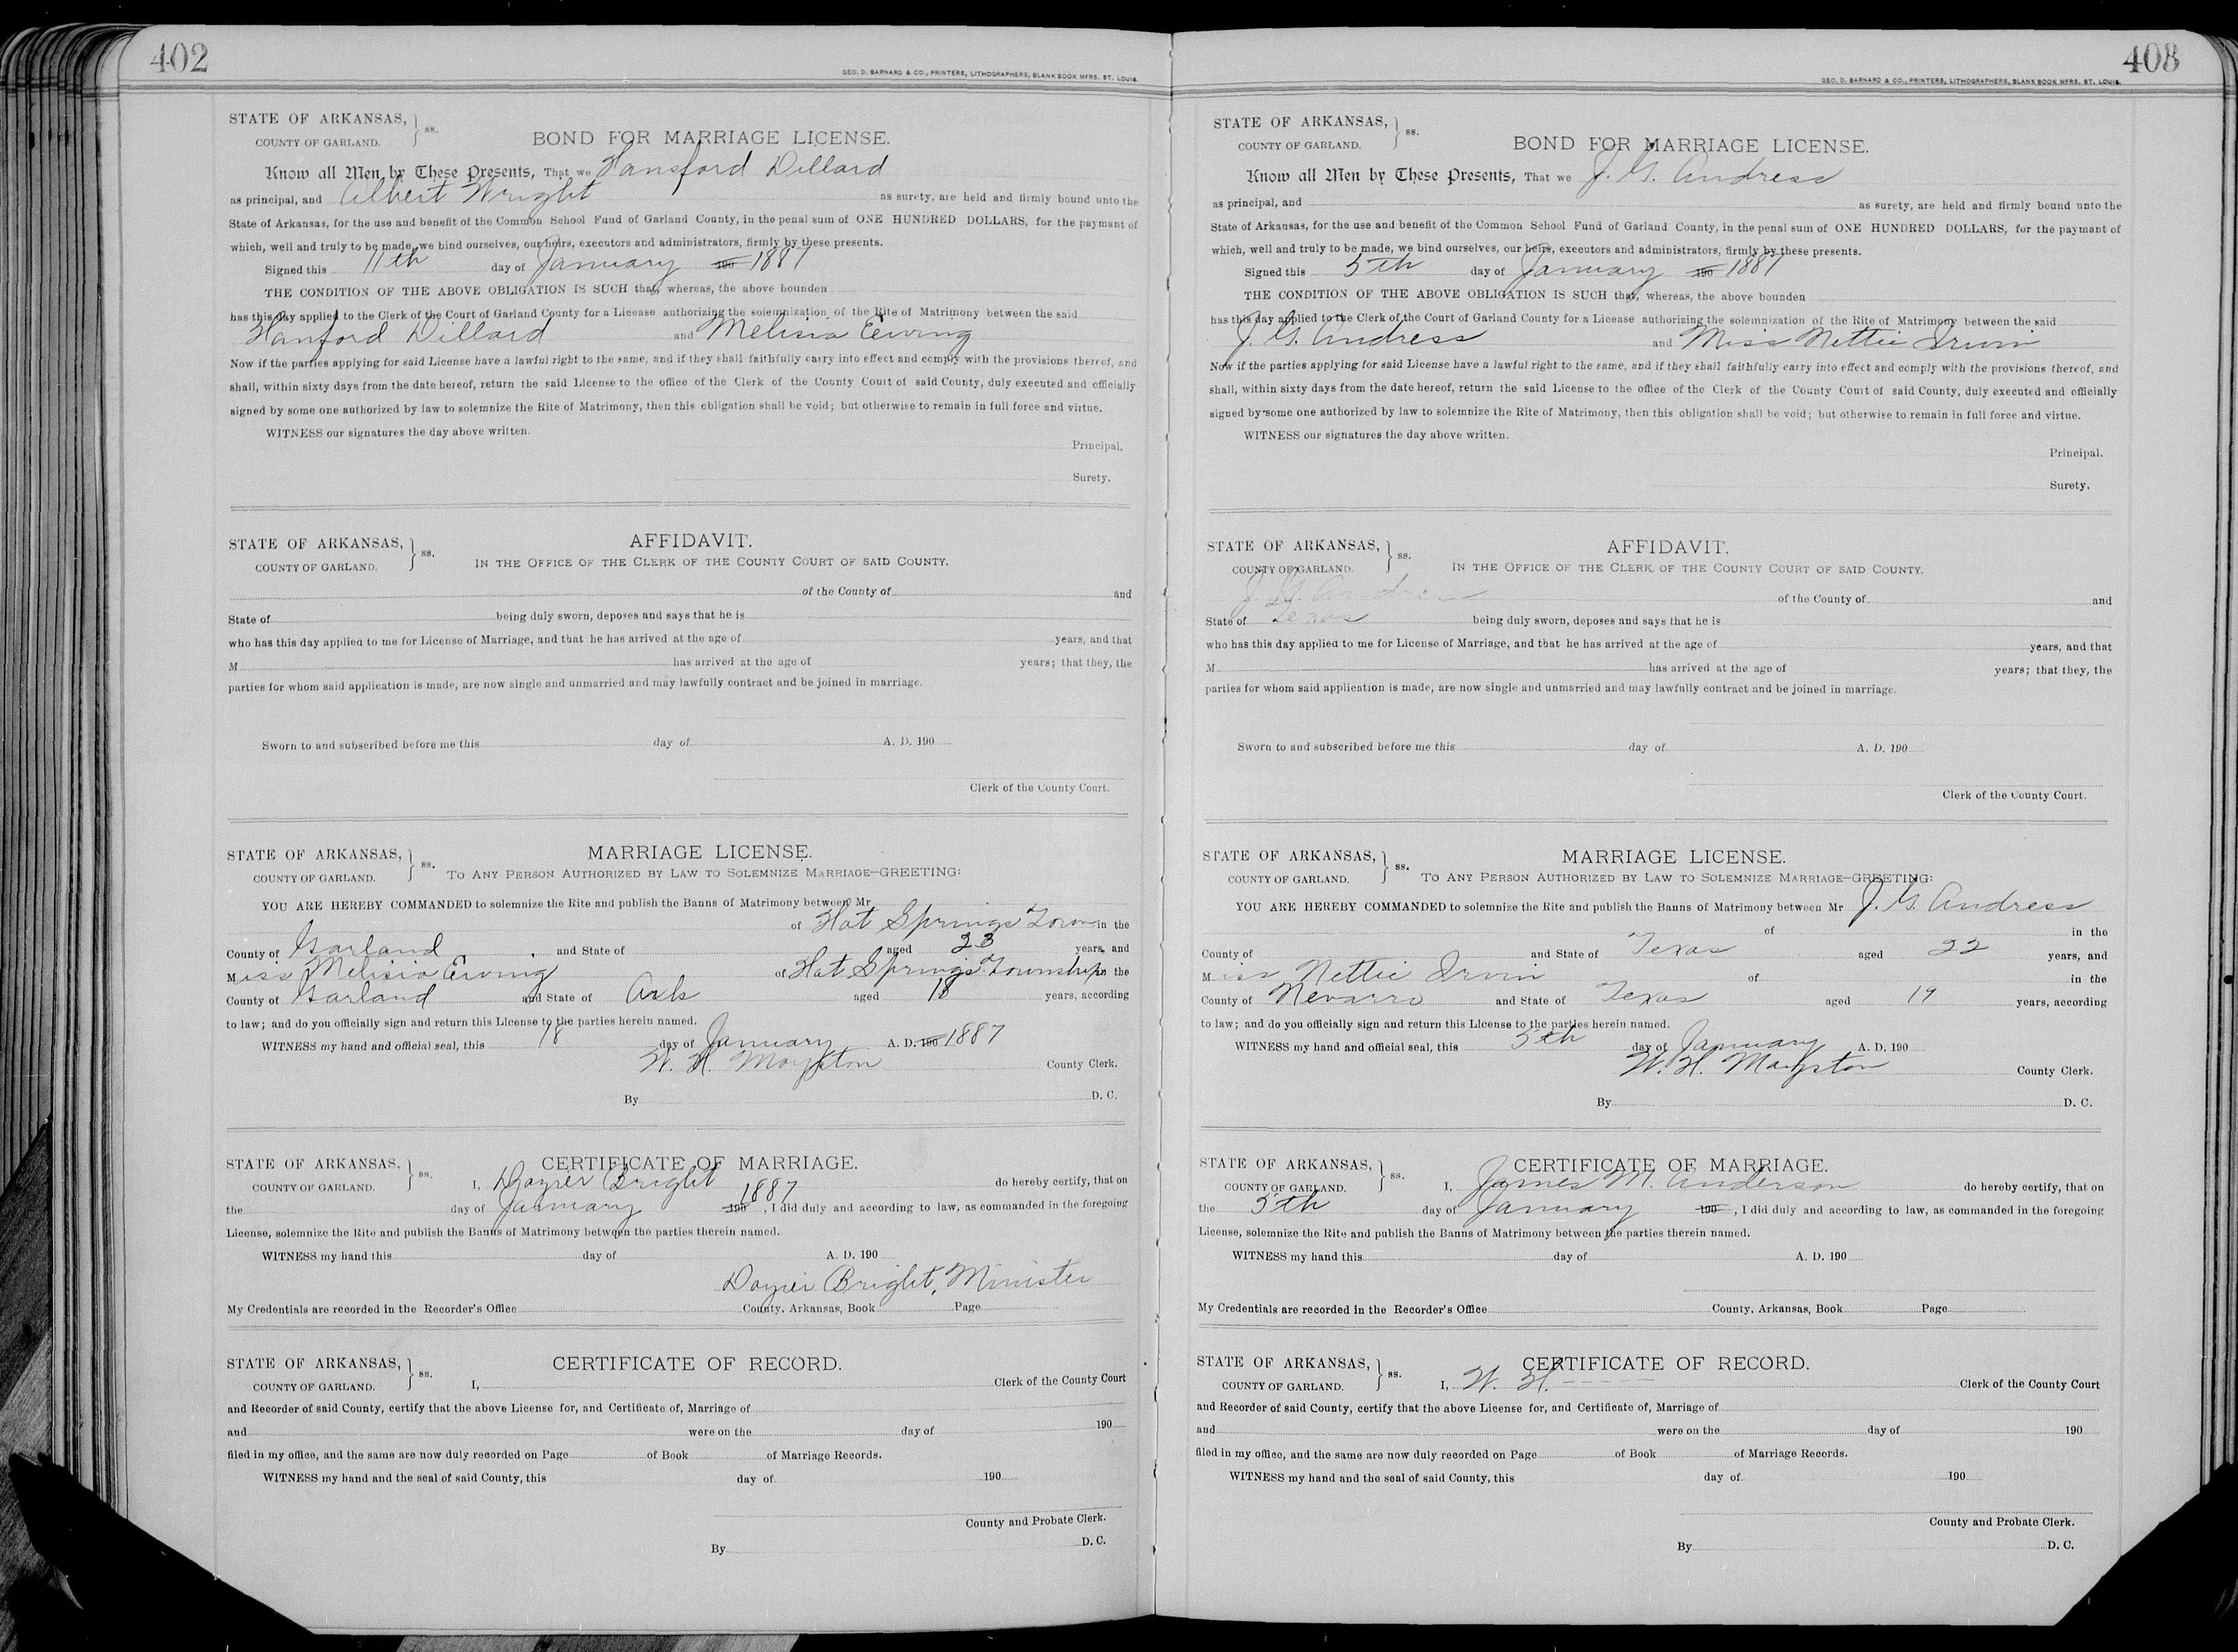 402
GEO. D. BARNARD & CO., PRINTERS, LITHOGRAPHERS, BLANK BOOK MFRS. ST. LOUIS.
STATE OF ARKANSAS,
COUNTY OF GARLAND. } ss.
BOND FOR MARRIAGE LICENSE.
Know all Men by These Presents, That we Hansford Dillard
as principal, and Albert Wright as surety, are held and firmly bound unto the
State of Arkansas, for the use and benefit of the Common School Fund of Garland County, in the penal sum of ONE HUNDRED DOLLARS, for the payment of
which, well and truly to be made, we bind ourselves, our heirs, executors and administrators, firmly by these presents.
Signed this 11th day of January 190 1887
THE CONDITION OF THE ABOVE OBLIGATION IS SUCH that, whereas, the above bounden
has this day applied to the Clerk of the Court of Garland County for a License authorizing the solemnization of the Rite of Matrimony between the said
Hanford Dillard and Melisia Ewing
Now if the parties applying for said License have a lawful right to the same, and if they shall faithfully carry into effect and comply with the provisions thereof, and
shall, within sixty days from the date hereof, return the said License to the office of the Clerk of the County Court of said County, duly executed and officially
signed by some one authorized by law to solemnize the Rite of Matrimony, then this obligation shall be void; but otherwise to remain in full force and virtue.
WITNESS our signatures the day above written.
Principal.
Surety.
STATE OF ARKANSAS,
COUNTY OF GARLAND. } ss.
AFFIDAVIT.
IN THE OFFICE OF THE CLERK OF THE COUNTY COURT OF SAID COUNTY.
of the County of and
State of being duly sworn, deposes and says that he is
who has this day applied to me for License of Marriage, and that he has arrived at the age of years, and that
M has arrived at the age of years; that they, the
parties for whom said application is made, are now single and unmarried and may lawfully contract and be joined in marriage.
Sworn to and subscribed before me this day of A. D. 190
Clerk of the County Court.
STATE OF ARKANSAS,
COUNTY OF GARLAND. } ss.
MARRIAGE LICENSE.
TO ANY PERSON AUTHORIZED BY LAW TO SOLEMNIZE MARRIAGE—GREETING:
YOU ARE HEREBY COMMANDED to solemnize the Rite and publish the Banns of Matrimony between Mr
of Hot Springs Town in the
County of Garland and State of aged 23 years, and
Miss Melisia Ewing of Hot Springs Township in the
County of Garland and State of Ark aged 18 years, according
to law; and do you officially sign and return this License to the parties herein named.
WITNESS my hand and official seal, this 18 day of January A. D. 190 1887
W. H. County Clerk.
By D. C.
STATE OF ARKANSAS,
COUNTY OF GARLAND. } ss.
CERTIFICATE OF MARRIAGE.
I, Dozier Bright do hereby certify, that on
the day of January 190 1887, I did duly and according to law, as commanded in the foregoing
License, solemnize the Rite and publish the Banns of Matrimony between the parties therein named.
WITNESS my hand this day of A. D. 190
Dozier Bright, Minister
My Credentials are recorded in the Recorder's Office County, Arkansas, Book Page
STATE OF ARKANSAS,
COUNTY OF GARLAND. } ss.
CERTIFICATE OF RECORD.
I, Clerk of the County Court
and Recorder of said County, certify that the above License for, and Certificate of, Marriage of
and were on the day of 190
filed in my office, and the same are now duly recorded on Page of Book of Marriage Records.
WITNESS my hand and the seal of said County, this day of 190
County and Probate Clerk.
By D. C.
408
GEO. D. BARNARD & CO., PRINTERS, LITHOGRAPHERS, BLANK BOOK MFRS. ST. LOUIS.
STATE OF ARKANSAS,
COUNTY OF GARLAND. } ss.
BOND FOR MARRIAGE LICENSE.
Know all Men by These Presents, That we J. G. Andress
as principal, and as surety, are held and firmly bound unto the
State of Arkansas, for the use and benefit of the Common School Fund of Garland County, in the penal sum of ONE HUNDRED DOLLARS, for the payment of
which, well and truly to be made, we bind ourselves, our heirs, executors and administrators, firmly by these presents.
Signed this 5th day of January 190 1887
THE CONDITION OF THE ABOVE OBLIGATION IS SUCH that, whereas, the above bounden
has this day applied to the Clerk of the Court of Garland County for a License authorizing the solemnization of the Rite of Matrimony between the said
J. G. Andress and Miss Nettie Irvin
Now if the parties applying for said License have a lawful right to the same, and if they shall faithfully carry into effect and comply with the provisions thereof, and
shall, within sixty days from the date hereof, return the said License to the office of the Clerk of the County Court of said County, duly executed and officially
signed by some one authorized by law to solemnize the Rite of Matrimony, then this obligation shall be void; but otherwise to remain in full force and virtue.
WITNESS our signatures the day above written.
Principal.
Surety.
STATE OF ARKANSAS,
COUNTY OF GARLAND. } ss.
AFFIDAVIT.
IN THE OFFICE OF THE CLERK OF THE COUNTY COURT OF SAID COUNTY.
J. G. Andress of the County of and
State of Texas being duly sworn, deposes and says that he is
who has this day applied to me for License of Marriage, and that he has arrived at the age of years, and that
M has arrived at the age of years; that they, the
parties for whom said application is made, are now single and unmarried and may lawfully contract and be joined in marriage.
Sworn to and subscribed before me this day of A. D. 190
Clerk of the County Court.
STATE OF ARKANSAS,
COUNTY OF GARLAND. } ss.
MARRIAGE LICENSE.
TO ANY PERSON AUTHORIZED BY LAW TO SOLEMNIZE MARRIAGE—GREETING:
YOU ARE HEREBY COMMANDED to solemnize the Rite and publish the Banns of Matrimony between Mr J. G. Andress
of in the
County of and State of Texas aged 22 years, and
Miss Nettie Irvin of in the
County of Nevarro and State of Texas aged 19 years, according
to law; and do you officially sign and return this License to the parties herein named.
WITNESS my hand and official seal, this 5th day of January A. D. 190
W. H. County Clerk.
By D. C.
STATE OF ARKANSAS,
COUNTY OF GARLAND. } ss.
CERTIFICATE OF MARRIAGE.
I, James M. Anderson do hereby certify, that on
the 5th day of January 190, I did duly and according to law, as commanded in the foregoing
License, solemnize the Rite and publish the Banns of Matrimony between the parties therein named.
WITNESS my hand this day of A. D. 190
My Credentials are recorded in the Recorder's Office County, Arkansas, Book Page
STATE OF ARKANSAS,
COUNTY OF GARLAND. } ss.
CERTIFICATE OF RECORD.
I, W. H. Clerk of the County Court
and Recorder of said County, certify that the above License for, and Certificate of, Marriage of
and were on the day of 190
filed in my office, and the same are now duly recorded on Page of Book of Marriage Records.
WITNESS my hand and the seal of said County, this day of 190
County and Probate Clerk.
By D. C.